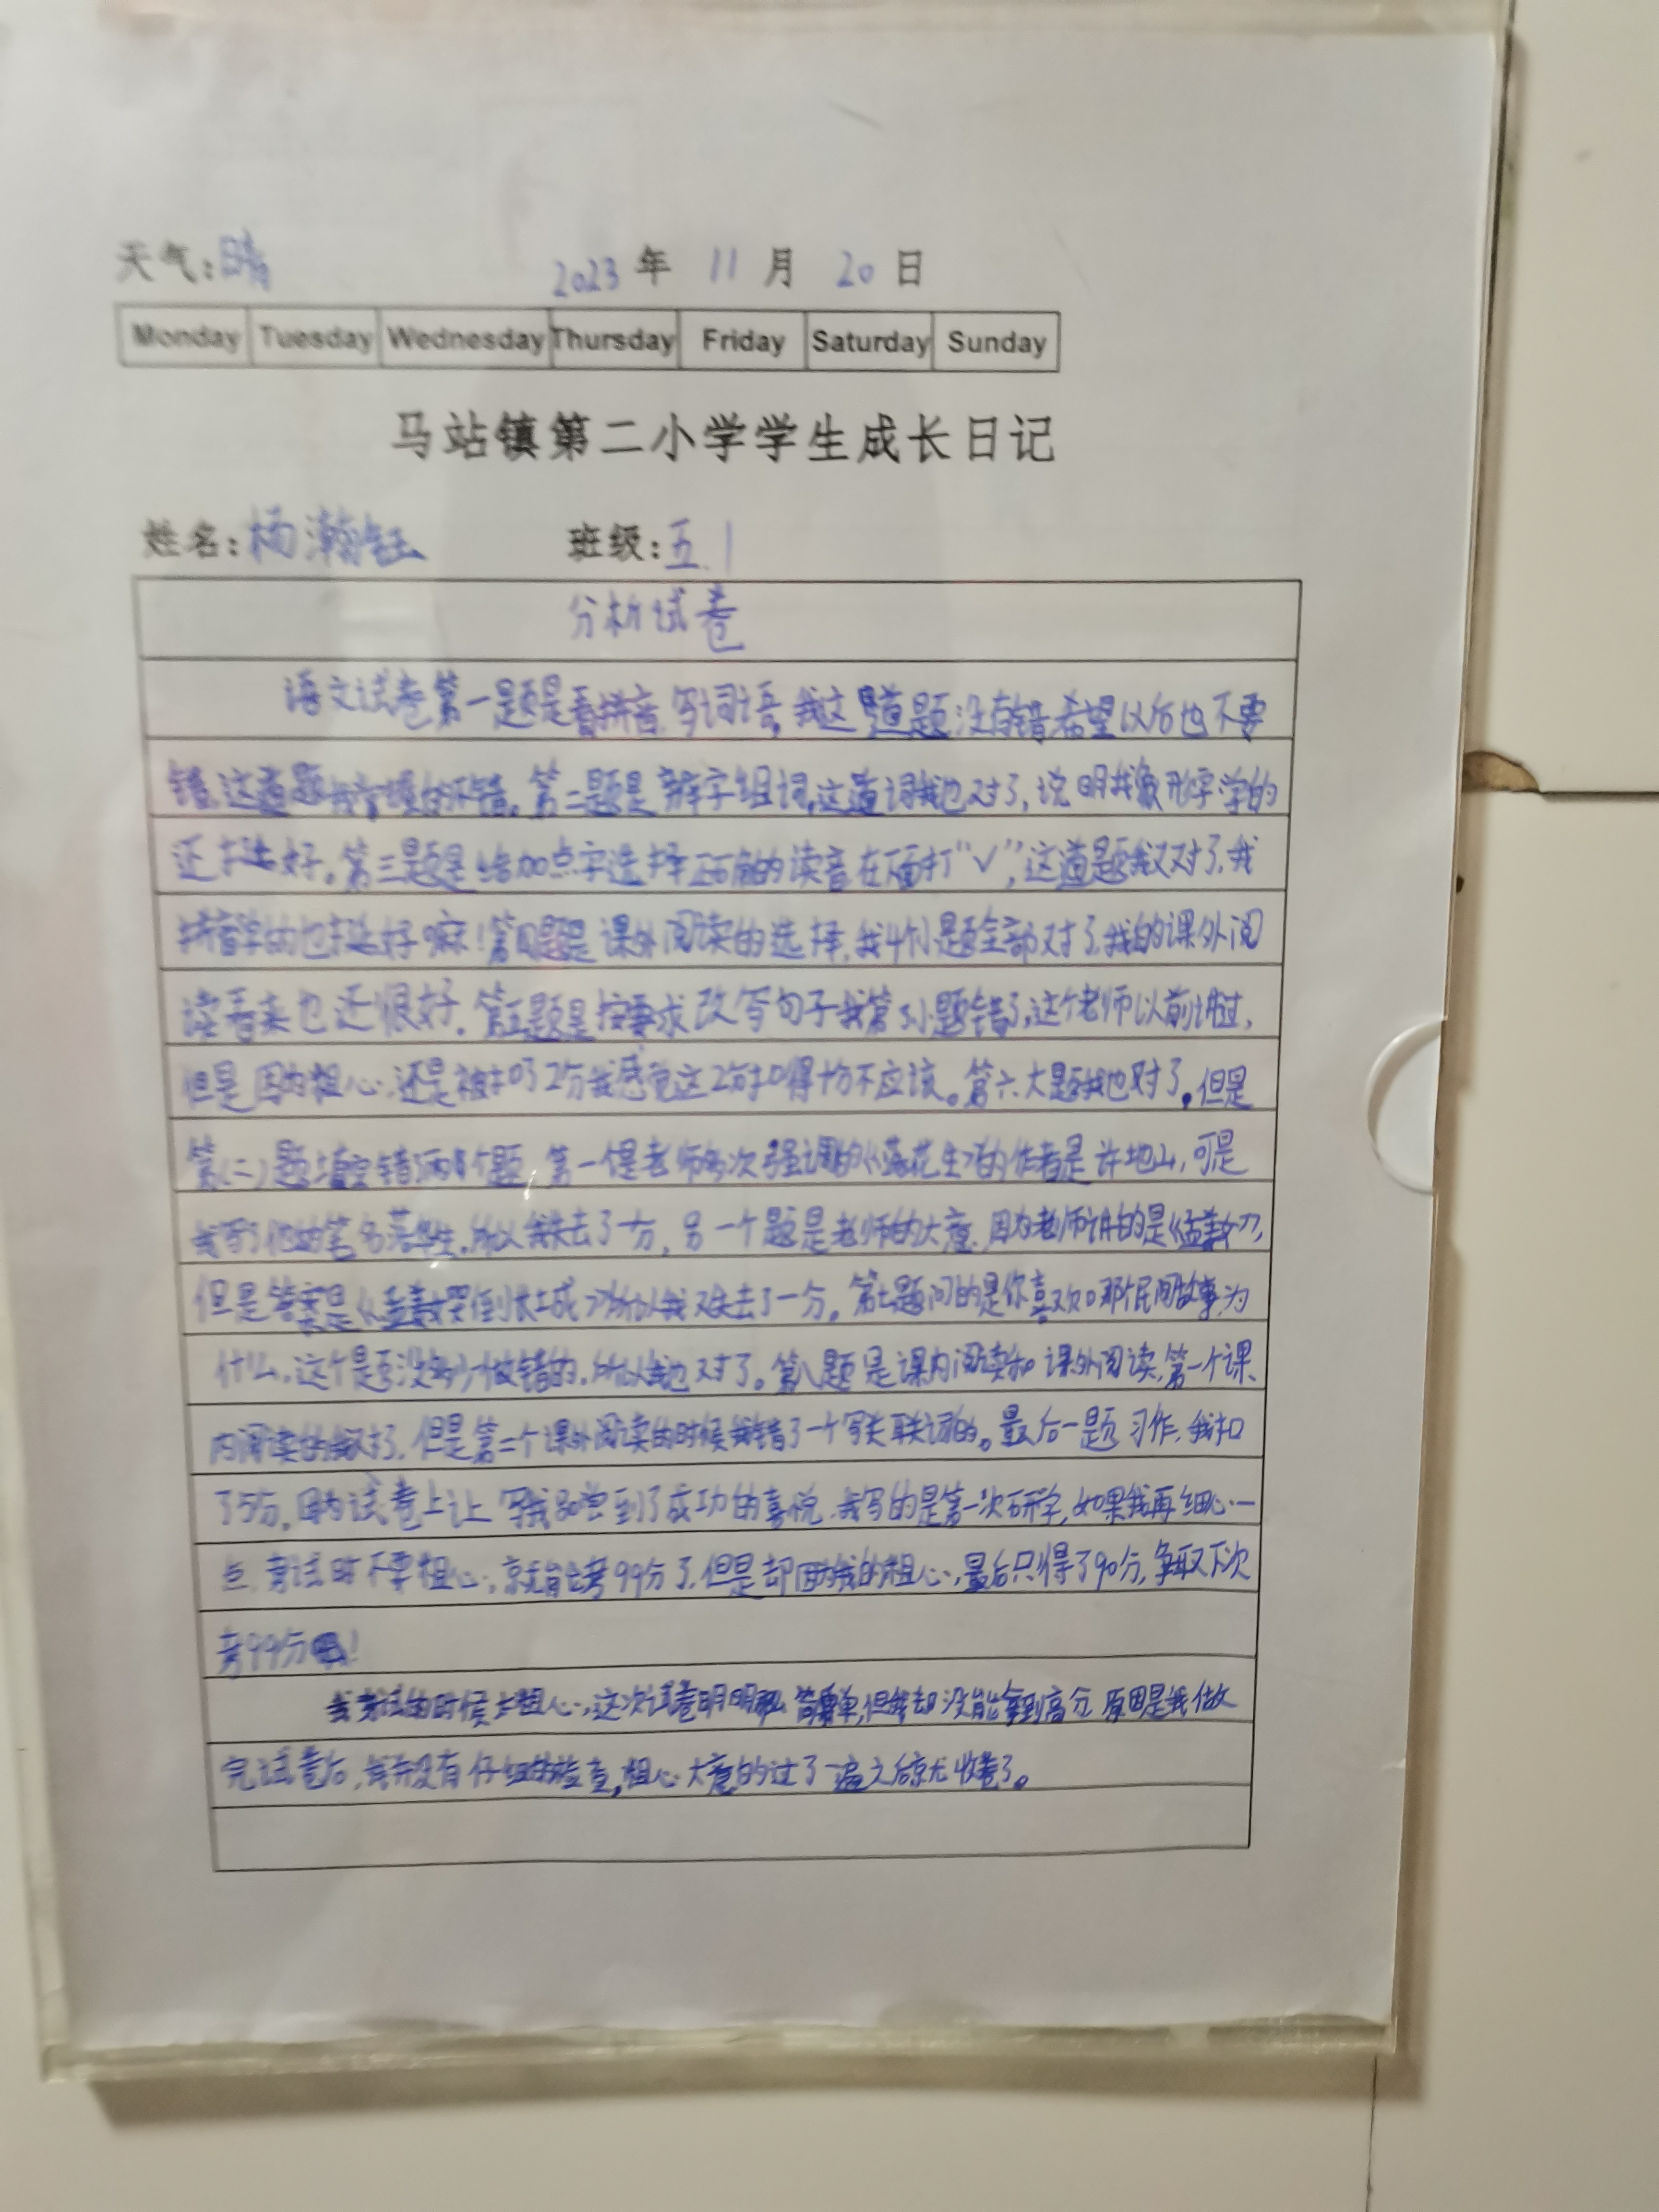 天气:晴 2023年 11月 20日
Monday Tuesday Wednesday Thursday Friday Saturday Sunday
马站镇第二小学学生成长日记
姓名:杨瀚钰 班级:五.1
分析试卷
语文试卷第一题是看拼音,写词语,我这道题没有错,希望以后也不要
错,这道题我掌握的不错。第二题是辨字组词,这道词我也对了,说明我象形字学的
还挺好。第三题是给加点字选择正确的读音在下面打“√”,这道题我又对了,我
拼音学的也挺好嘛!第四题是课外阅读的选择,我4个小题全部对了,我的课外阅
读看来也还很好。第五题是按要求改写句子我第3小题错了,这个老师以前讲过,
但是因为粗心,还是被扣了2分我感觉这2分扣得十分不应该。第六大题我也对了。但是
第(二)题填空错了两个题,第一个是老师多次强调的《落花生》的作者是许地山,可是
我写了他的笔名落华生,所以我失去了一分,另一个题是老师的大意,因为老师讲的是《孟姜女》,
但是答案是《孟姜女哭倒长城》所以我又失去了一分。第七题问的是你喜欢哪个民间故事,为
什么,这个是否没多少做错的,所以我也对了。第八题是课内阅读和课外阅读,第一个课
内阅读的我对了,但是第二个课外阅读的时候我错了一个写关联词的。最后一题习作,我扣
了5分,因为试卷上让写我品尝到了成功的喜悦,我写的是第一次研学,如果我再细心一
点,考试时不要粗心,就能考99分了,但是却因为我的粗心,最后只得了90分,争取下次
考99分!
我考试的时候太粗心,这次试卷明明那么简单,但我却没能拿到高分,原因是我做
完试卷后,我并没有仔细的检查,粗心大意的过了一遍之后就收卷了。